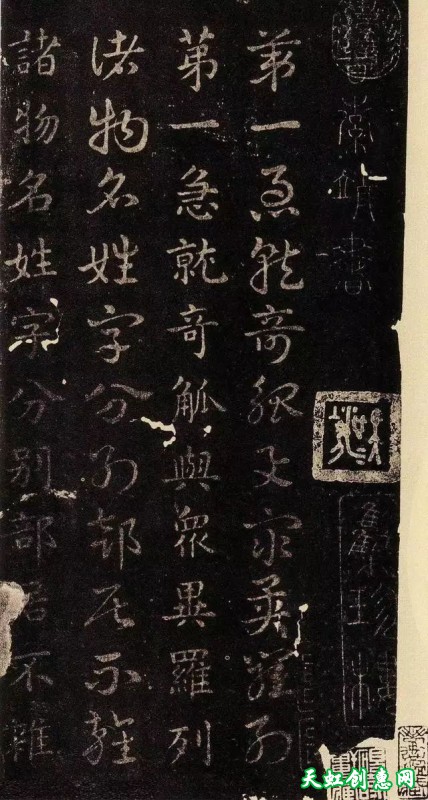 索靖書
第一急就奇觚與衆異羅列
第一急就奇觚與衆異羅列
諸物名姓字分别部居不雜
諸物名姓字分别部居不雜
天虹创惠网